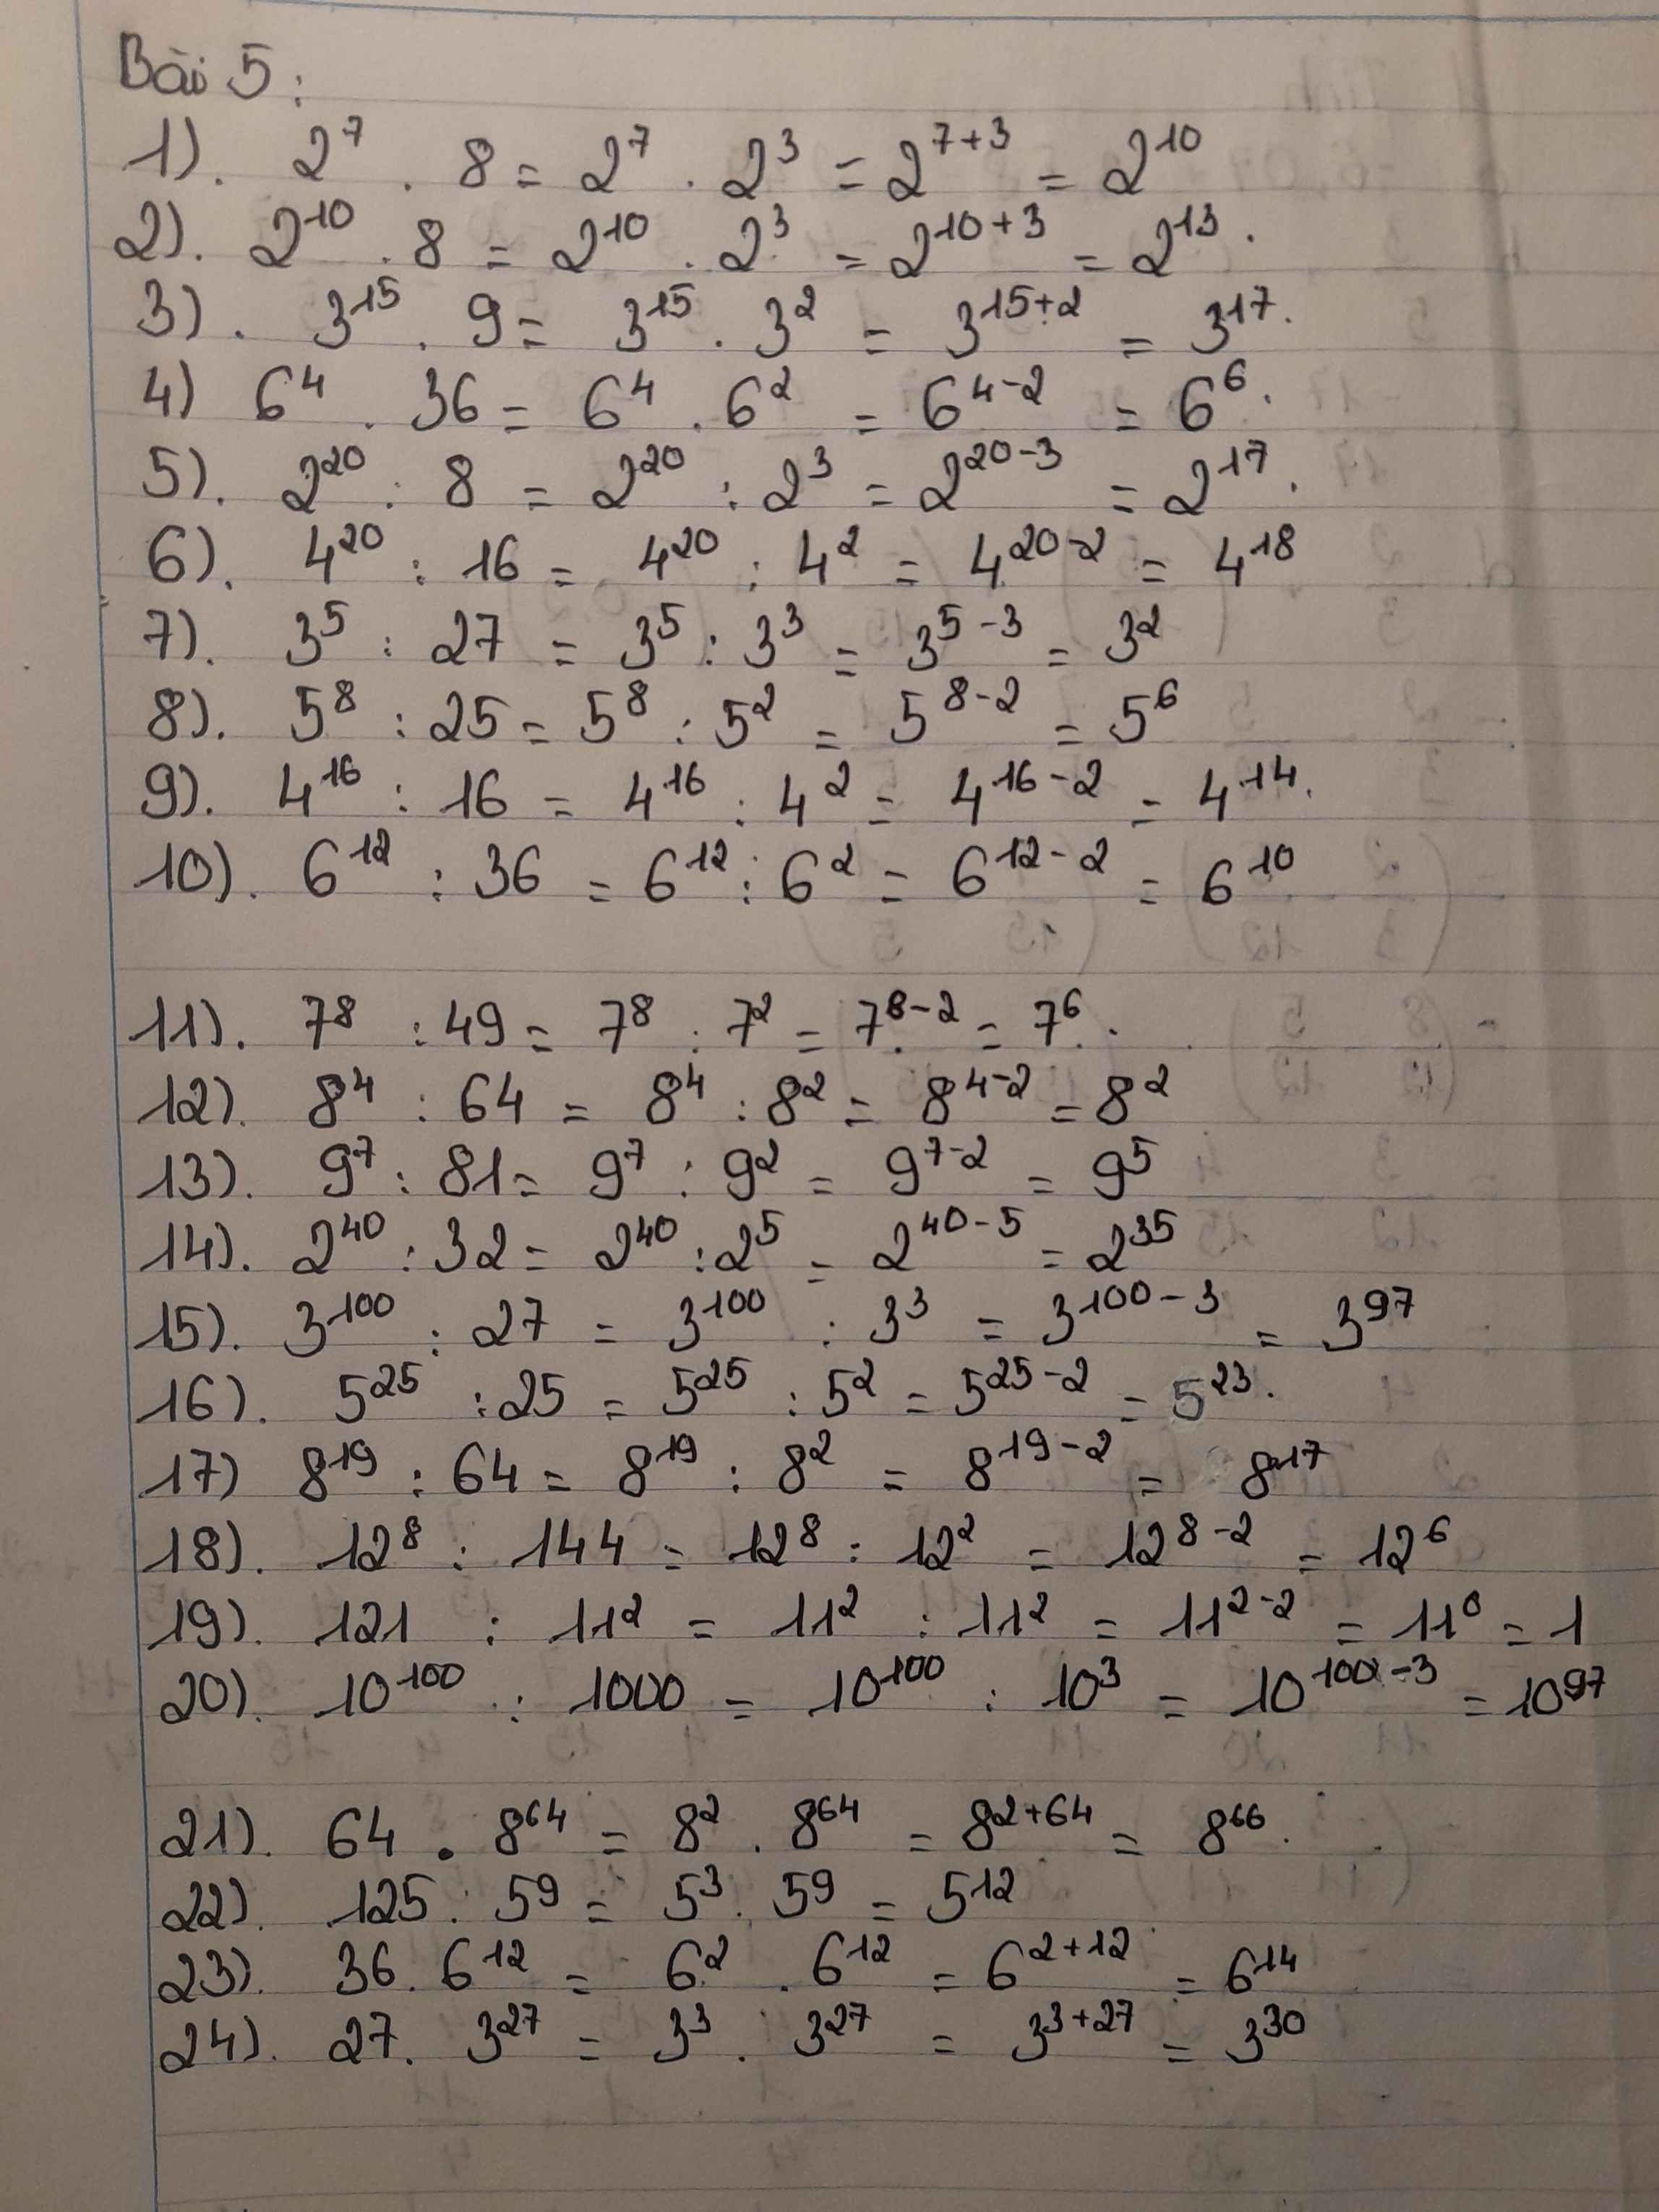 Bài 5:
1). 2⁷ . 8 = 2⁷ . 2³ = 2⁷⁺³ = 2¹⁰
2). 2¹⁰ . 8 = 2¹⁰ . 2³ = 2¹⁰⁺³ = 2¹³.
3). 3¹⁵ . 9 = 3¹⁵ . 3² = 3¹⁵⁺² = 3¹⁷.
4) 6⁴ . 36 = 6⁴ . 6² = 6⁴⁻² = 6⁶.
5). 2²⁰ : 8 = 2²⁰ : 2³ = 2²⁰⁻³ = 2¹⁷.
6). 4²⁰ : 16 = 4²⁰ : 4² = 4²⁰⁻² = 4¹⁸
7). 3⁵ : 27 = 3⁵ : 3³ = 3⁵⁻³ = 3²
8). 5⁸ : 25 = 5⁸ : 5² = 5⁸⁻² = 5⁶
9). 4¹⁶ : 16 = 4¹⁶ : 4² = 4¹⁶⁻² = 4¹⁴.
10). 6¹² : 36 = 6¹² : 6² = 6¹²⁻² = 6¹⁰
11). 7⁸ : 49 = 7⁸ : 7² = 7⁸⁻² = 7⁶.
12). 8⁴ : 64 = 8⁴ : 8² = 8⁴⁻² = 8²
13). 9⁷ : 81 = 9⁷ : 9² = 9⁷⁻² = 9⁵
14). 2⁴⁰ : 32 = 2⁴⁰ : 2⁵ = 2⁴⁰⁻⁵ = 2³⁵
15). 3¹⁰⁰ : 27 = 3¹⁰⁰ : 3³ = 3¹⁰⁰⁻³ = 3⁹⁷
16). 5²⁵ : 25 = 5²⁵ : 5² = 5²⁵⁻² = 5²³.
17) 8¹⁹ : 64 = 8¹⁹ : 8² = 8¹⁹⁻² = 8¹⁷
18). 12⁸ : 144 = 12⁸ : 12² = 12⁸⁻² = 12⁶
19). 121 : 11² = 11² : 11² = 11²⁻² = 11⁰ = 1
20). 10¹⁰⁰ : 1000 = 10¹⁰⁰ : 10³ = 10¹⁰⁰⁻³ = 10⁹⁷
21). 64 . 8⁶⁴ = 8² . 8⁶⁴ = 8²⁺⁶⁴ = 8⁶⁶.
22). 125 . 5⁹ = 5³ . 5⁹ = 5¹²
23). 36 . 6¹² = 6² . 6¹² = 6²⁺¹² = 6¹⁴
24). 27 . 3²⁷ = 3³ . 3²⁷ = 3³⁺²⁷ = 3³⁰